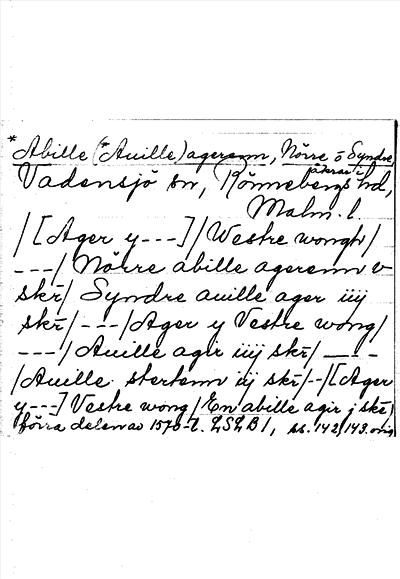 *Abille (*Auille)agerenn, Nörre o Syndre
åkrar i
Vadensjö sn, Rönnebergs hd,
Malm. l.
/[Ager y---]/Westre wongh/
---/ Nörre abille agerenn v
skr/ Syndre auille ager iiij
skr/---/Ager y Vestre wong/
---/Auille agir iiij skr/---
/Auille stertenn iij skr/--/[Ager
y---] Vestre wong/En abille agir j skr/
förra delen av 1570-t. LSLB1, ss. 142, 143. orig